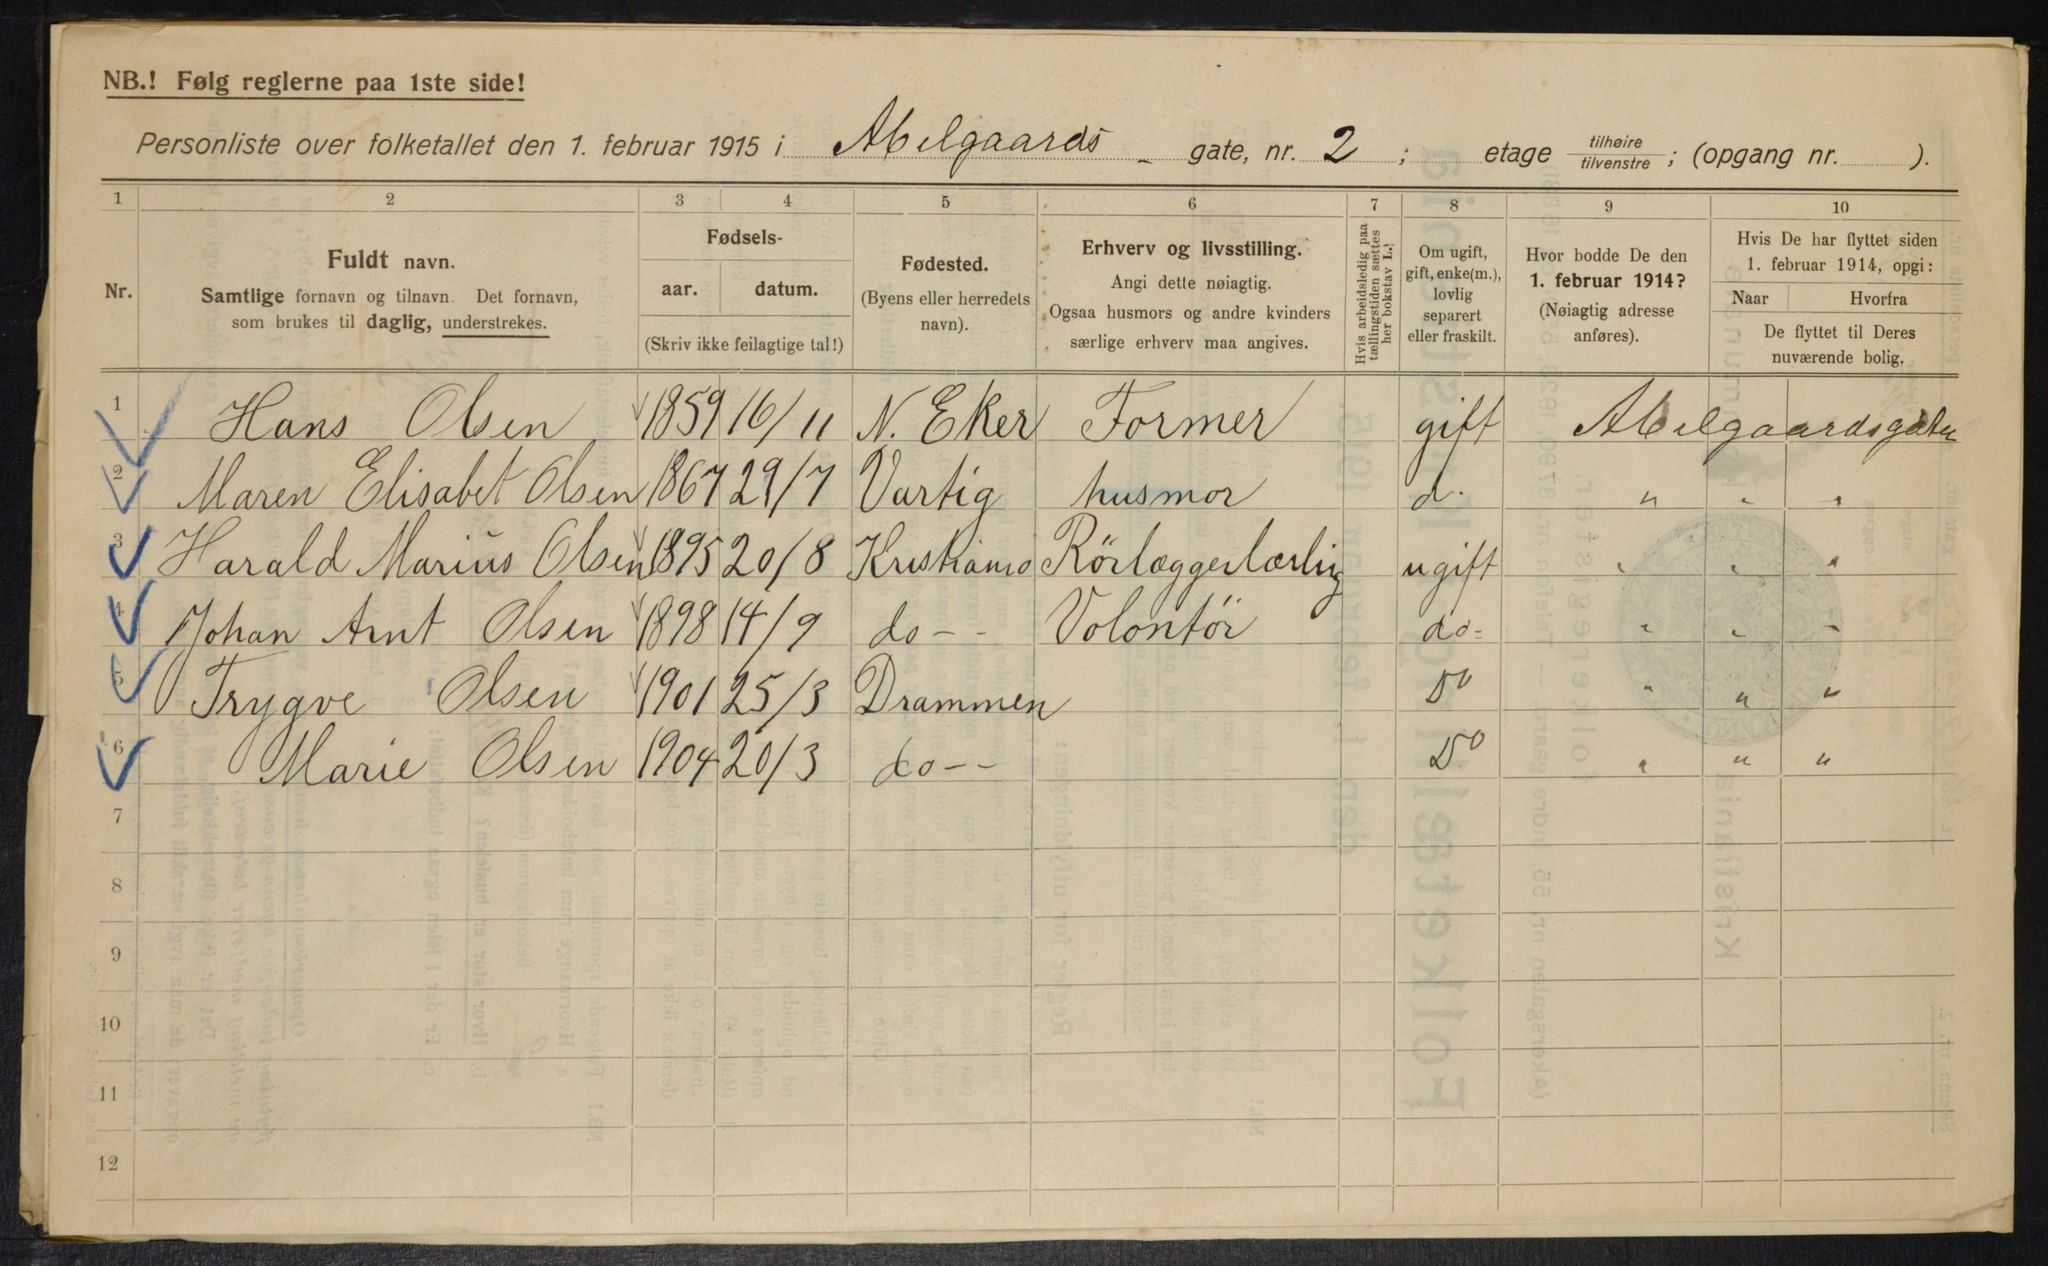 NB.! Følg reglerne paa 1ste side!
Personliste over folketallet den 1. februar 1915 i Abelgaards - gate, nr. 2 ; etage tilhøire tilvenstre ; (opgang nr. ).
1 2 3 4 5 6 7 8 9 10
Nr.
Fuldt navn.
Samtlige fornavn og tilnavn. Det fornavn,
som brukes til daglig, understrekes.
Fødsels-
aar. datum.
(Skriv ikke feilagtige tal!)
Fødested.
(Byens eller herredets
navn).
Erhverv og livsstilling.
Angi dette nøiagtig.
Ogsaa husmors og andre kvinders
særlige erhverv maa angives.
Hvis arbeidsledig paa
tællingstiden sættes
her bokstav L.!
Om ugift,
gift, enke(m.),
lovlig
separert
eller fraskilt.
Hvor bodde De den
1. februar 1914?
(Nøiagtig adresse
anføres).
Hvis De har flyttet siden
1. februar 1914, opgi:
Naar Hvorfra
De flyttet til Deres
nuværende bolig.
1 Hans Olsen 1859 16/11 N. Eker Former gift Abelgaardsgaten
2 Maren Elisabet Olsen 1867 29/7 Vartig husmor d. " " "
3 Harald Marius Olsen 1895 20/8 Kristiania Rörlæggerlærling ugift " " "
4 Johan Arnt Olsen 1898 14/9 do -- Volontör do- " " "
5 Trygve Olsen 1901 25/3 Drammen Do " " "
6 Marie Olsen 1904 20/3 do -- Do " " "
7
8
9
10
11
12